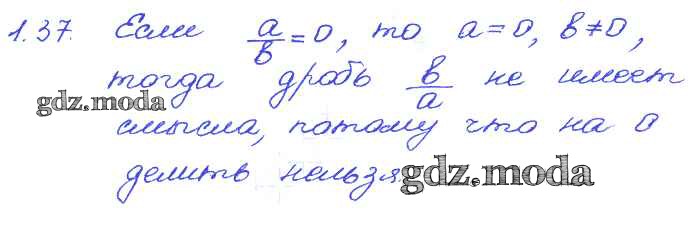 1.37. Если a/b = 0, то a = 0, b ≠ 0,
тогда дробь b/a не имеет
gdz.moda
смысла, потому что на 0
делить нельзя.
gdz.moda